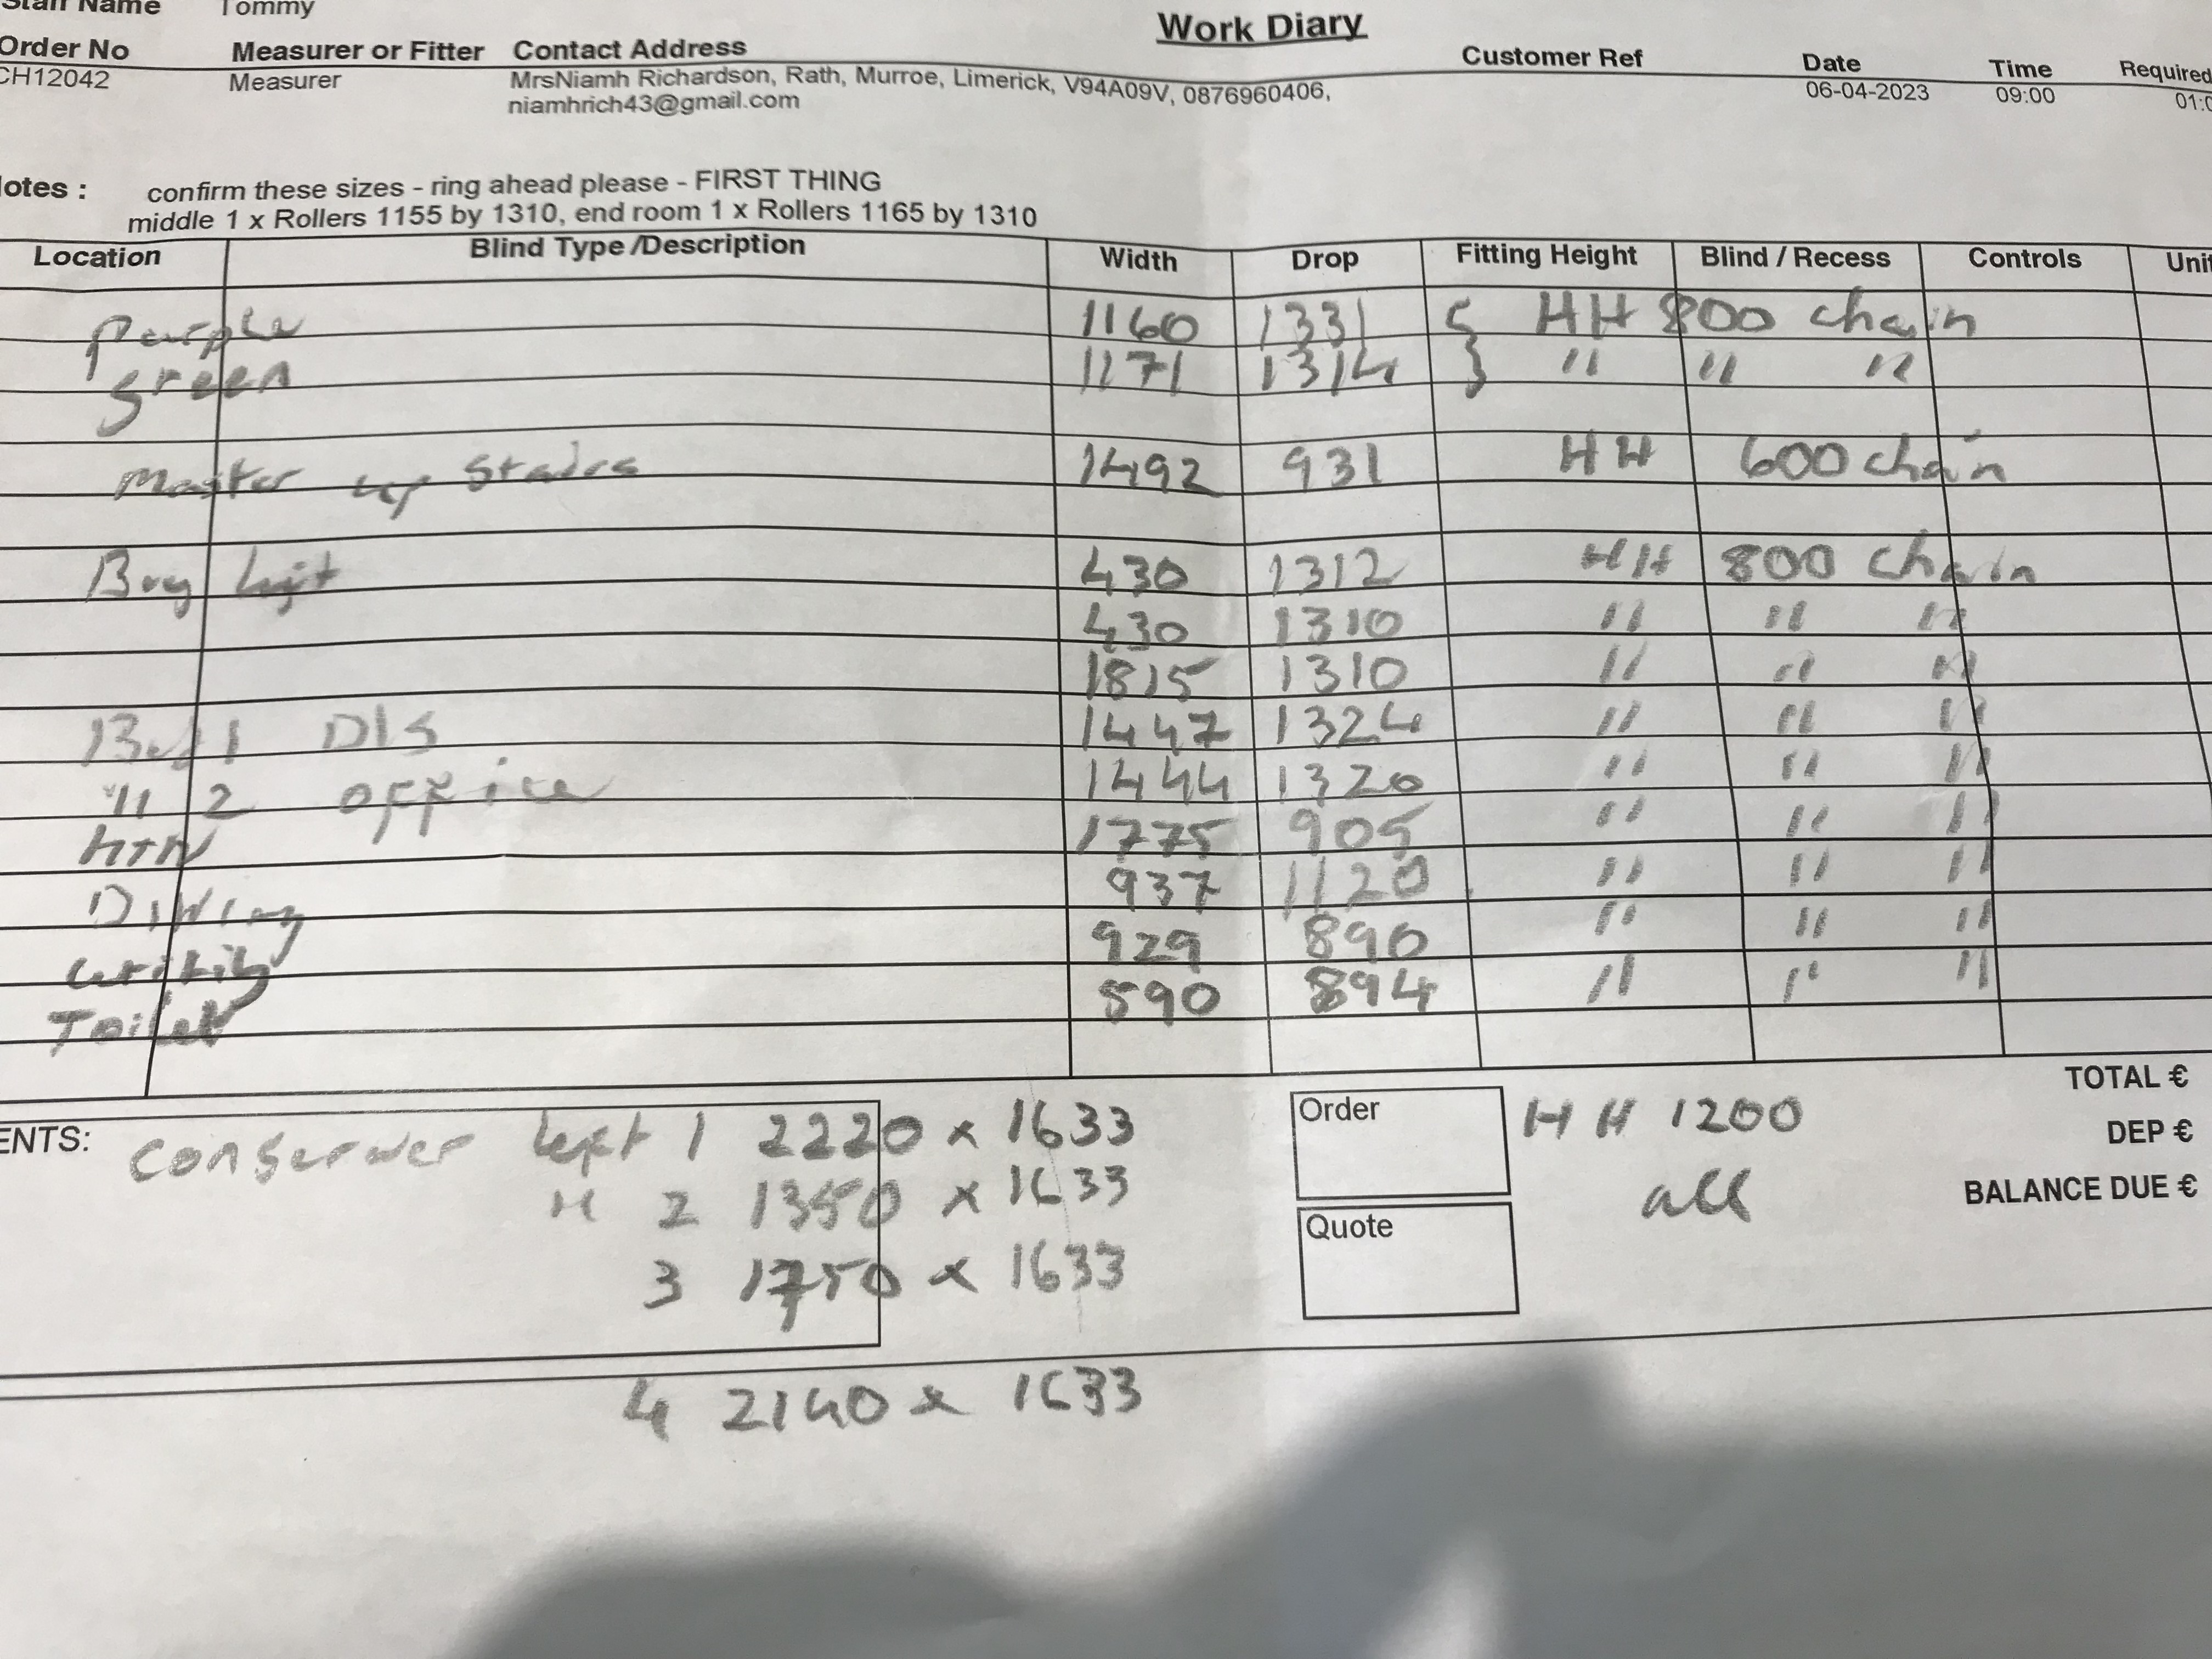 Staff Name Tommy
Work Diary
Order No Measurer or Fitter Contact Address Customer Ref Date Time Required
CH12042 Measurer MrsNiamh Richardson, Rath, Murroe, Limerick, V94A09V, 0876960406, 06-04-2023 09:00 01:0
niamhrich43@gmail.com
Notes : confirm these sizes - ring ahead please - FIRST THING
middle 1 x Rollers 1155 by 1310, end room 1 x Rollers 1165 by 1310
Location Blind Type /Description Width Drop Fitting Height Blind / Recess Controls Unit
Purple 1160 1331 { HH 800 chain
green 1171 1314 } " " "
Master up Stairs 1492 931 HH 600 chain
Bay 430 1312 HH 800 chain
430 1310 " " "
1815 1310 " " "
Bed 1 D/S 1447 1324 " " "
" 2 office 1444 1320 " " "
KTN 1775 905 " " "
Dining 937 1120 " " "
utility 929 890 " " "
Toilet 590 894 " " "
TOTAL €
ENTS: conserver left 1 2220 x 1633 Order HH 1200 DEP €
" 2 1350 x 1633 all BALANCE DUE €
3 1750 x 1633 Quote
4 2140 x 1633